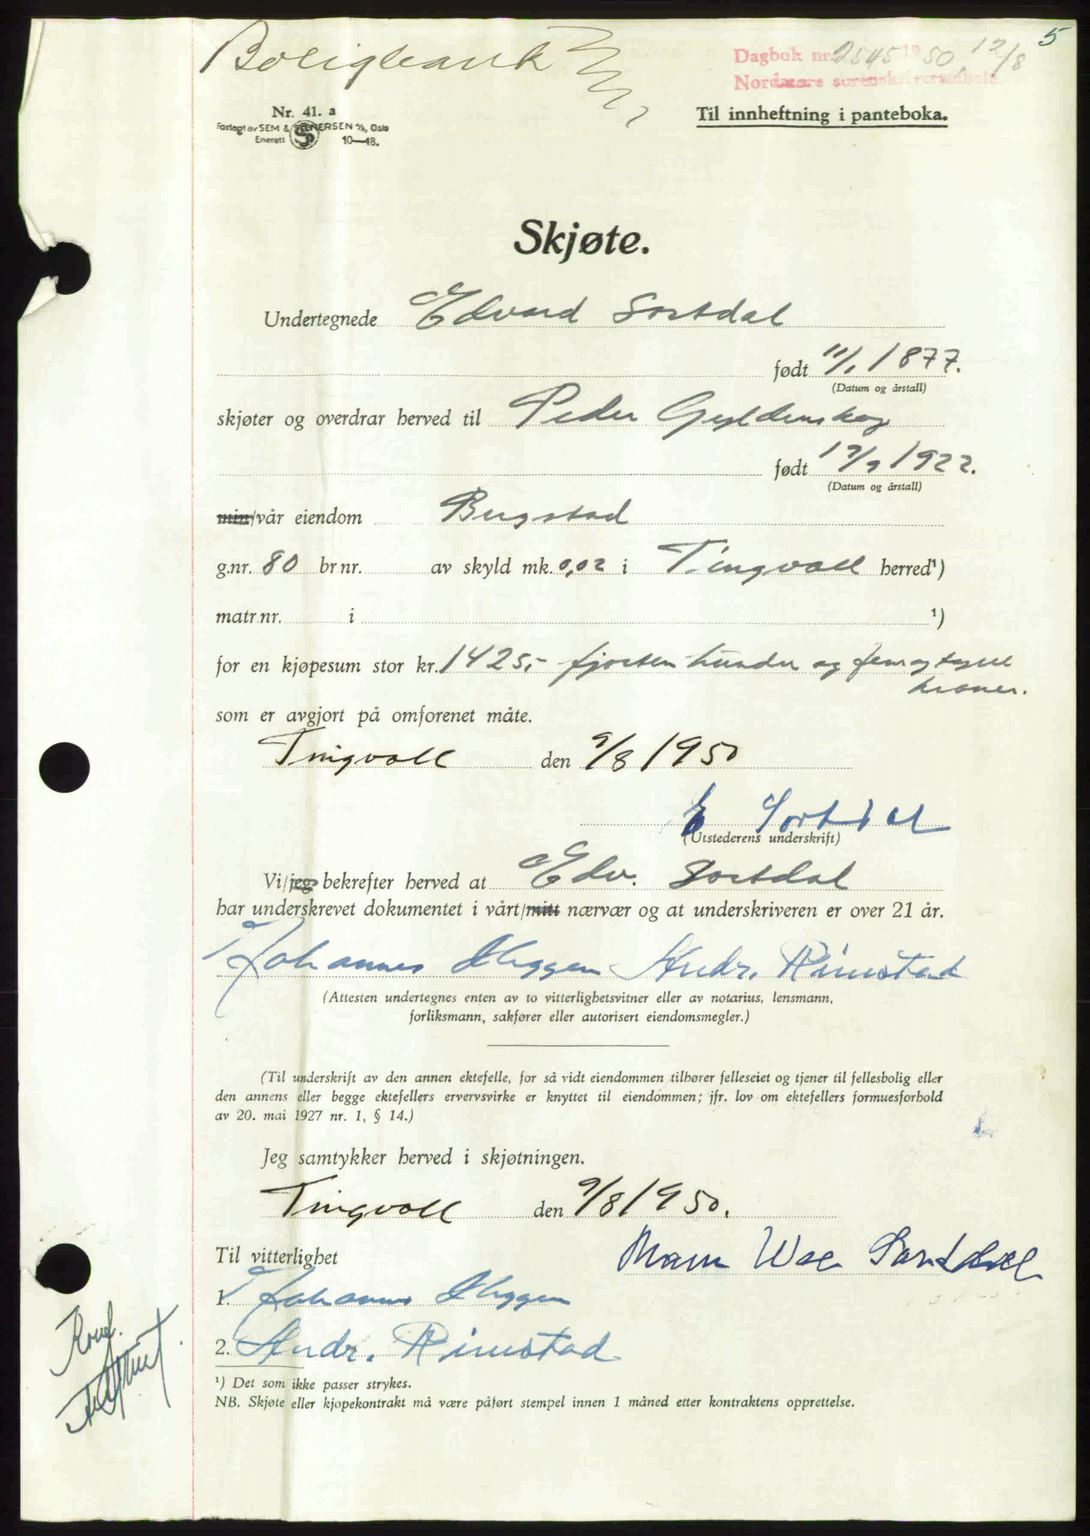 5
Boligbank
Dagbok nr. 2545 1950 12/8
Nordmøre sorenskriverembete
Nr. 41. a
Forlagt av SEM & STENERSEN A/S, Oslo
Enerett 10—48.
Til innheftning i panteboka.
Skjøte.
Undertegnede Edvard Sortdal
født 11/1 1877.
(Datum og årstall)
skjøter og overdrar herved til Peder Gyldenskog
født 17/9 1922.
(Datum og årstall)
min/vår eiendom Bergstad
g.nr. 80 br nr. av skyld mk. 0,02 i Tingvoll herred¹)
matr.nr. i ¹)
for en kjøpesum stor kr. 1425,- fjorten hundre og femogtyve
kroner.
som er avgjort på omforenet måte.
Tingvoll den 9/8 1950
E Sortdal
(Utstederens underskrift)
Vi/jeg bekrefter herved at Edv. Sortdal
har underskrevet dokumentet i vårt/mitt nærvær og at underskriveren er over 21 år.
Johannes Meggen Andr. Rimstad
(Attesten undertegnes enten av to vitterlighetsvitner eller av notarius, lensmann,
forliksmann, sakfører eller autorisert eiendomsmegler.)
(Til underskrift av den annen ektefelle, for så vidt eiendommen tilhører felleseiet og tjener til fellesbolig eller
den annens eller begge ektefellers ervervsvirke er knyttet til eiendommen; jfr. lov om ektefellers formuesforhold
av 20. mai 1927 nr. 1, § 14.)
Jeg samtykker herved i skjøtningen.
Tingvoll den 9/8 1950.
Til vitterlighet
Sortdal
1. Johannes Meggen
2. Andr. Rimstad
¹) Det som ikke passer strykes.
NB. Skjøte eller kjøpekontrakt må være påført stempel innen 1 måned etter kontraktens opprettelse.